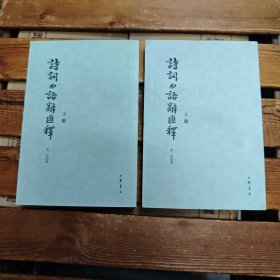 詩詞曲語辭匯釋
上冊
張相著
中華書局
詩詞曲語辭匯釋
下冊
張相著
中華書局